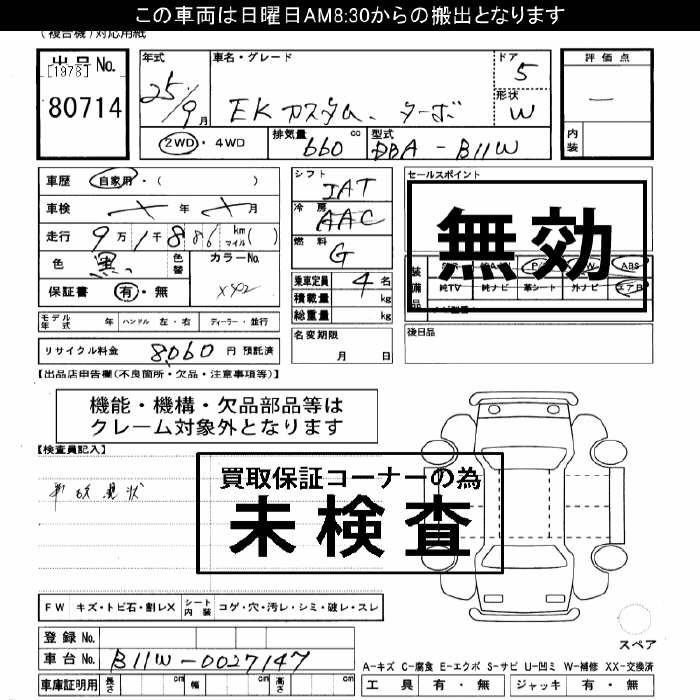 この車両は日曜日AM8:30からの搬出となります
(複合機)対応用紙
出品No.
[1978]
80714
年式
25/9月
車名・グレード
EKカスタム、ターボ
ドア 5
形状 W
2WD・4WD
排気量 660 cc
型式 DBA-B11W
評価点
内装
車歴 自家用・( )
車検 年 月
走行 9万1千886 km マイル( )
色 黒 色替
カラーNo. X42
保証書 有・無
シフト IAT
冷房 AAC
燃料 G
乗車定員 4名
積載量 kg
総重量 kg
セールスポイント
無効
装備品
ABS
純TV 純ナビ 革シート 外ナビ エアB
モデル年式 年 ハンドル 左・右 ディーラー・並行
リサイクル料金 8,060円 預託済
名変期限
月 日
後日品
【出品店申告欄(不良箇所・欠品・注意事項等)】
機能・機構・欠品部品等は
クレーム対象外となります
【検査員記入】
事故現状
買取保証コーナーの為
未検査
FW キズ・トビ石・割レX シート内装 コゲ・穴・汚レ・シミ・破レ・スレ
登録No.
車台No. B11W-0027147
車庫証明用 長さ cm 幅 cm 高さ cm
スペア
A-キズ C-腐食 E-エクボ S-サビ U-凹ミ W-補修 XX-交換済
工具 有・無 ジャッキ 有・無